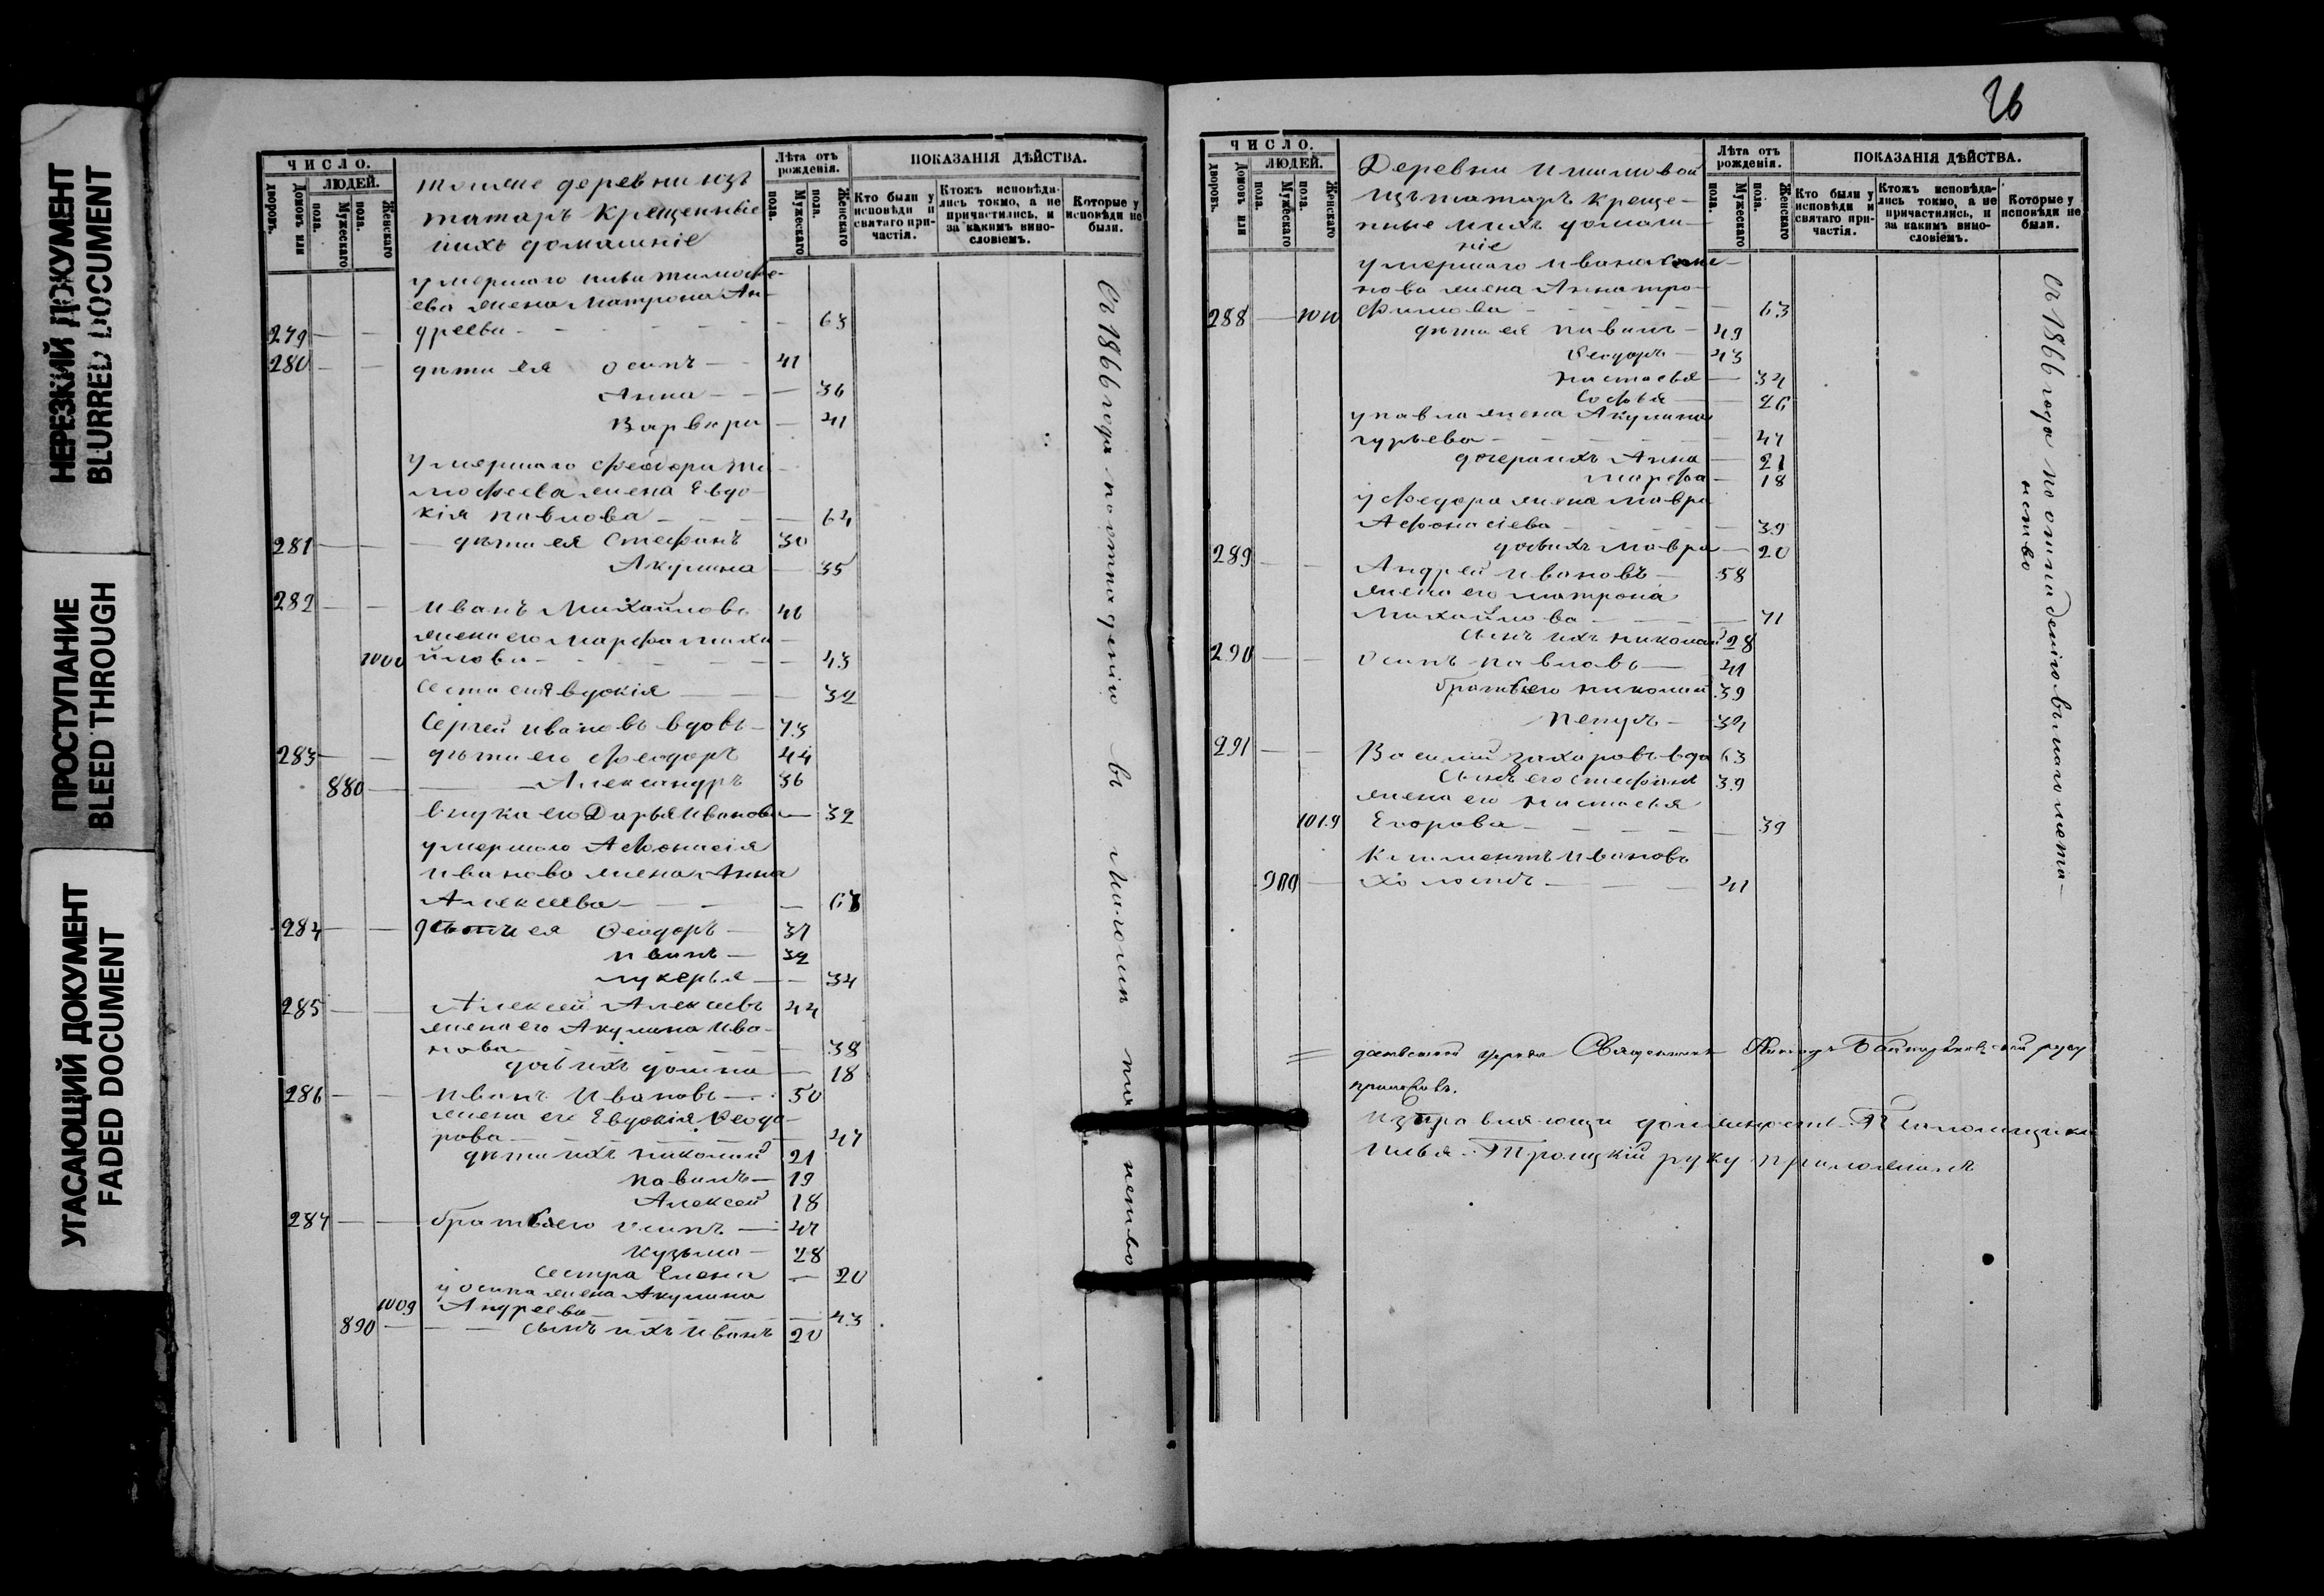 НЕРЕЗКИЙ ДОКУМЕНТ
BLURRED DOCUMENT
ПРОСТУПАНИЕ
BLEED THROUGH
УГАСАЮЩИЙ ДОКУМЕНТ
FADED DOCUMENT
ЧИСЛО.
ЛЮДЕЙ.
Домовъ или дворовъ.
Мужескаго пола.
Женскаго пола.
тоже деревни изъ
татаръ крещенные
ихъ домашніе
Лѣта отъ рожденія.
Мужескаго пола.
Женскаго пола.
ПОКАЗАНІЯ ДѢЙСТВА.
Кто были у исповѣди и святаго при-частія.
Ктожъ исповѣда-лись токмо, а не причастились, и за какимъ вино-словіемъ.
Которые у исповѣди не были.
умершаго Тимофе-
ева жена Матрона Ан-
279 дреева 63
280 дѣти ея Осипъ 41
Анна 36
Варвара 41
Умершаго Феодора Ти
мофеева жена Евдо-
кія Павлова 64
281 дѣти ея Стефанъ 30
Акулина 35
282 Иванъ Михайловъ 46
жена его Марфа Миха
1000 йлова 43
Евдокія 32
Сергей Ивановъ вдовъ 73
283 дѣти его Феодоръ 44
880 Александръ 36
внука его Дарья Иванова 32
умершаго Афонасія
Иванова жена Анна
Алексеева
284 дѣти ея Феодоръ 37
Иванъ 32
Лукерья 34
285 Алексей Алексеевъ 44
жена его Акулина Ива-
нова 38
дочь ихъ Домна 18
286 Иванъ Ивановъ 50
жена его Евдокія Феодо-
рова 47
дѣти ихъ Николай 21
Павилъ 19
Алексей 18
287 братья его Осипъ 47
Кузьма 28
сестра Елена 20
у Осипа жена Акулина
1009 Андреева 43
890 сынъ ихъ Иванъ 20
Съ 1866 года по отпаденію въ Магометанство
26
ЧИСЛО.
ЛЮДЕЙ.
Домовъ или дворовъ.
Мужескаго пола.
Женскаго пола.
Деревни
Изъ татаръ креще-
ные ихъ домаш-
ніе
Лѣта отъ рожденія.
Мужескаго пола.
Женскаго пола.
ПОКАЗАНІЯ ДѢЙСТВА.
Кто были у исповѣди и святаго при-частія.
Ктожъ исповѣда-лись токмо, а не причастились, и за какимъ вино-словіемъ.
Которые у исповѣди не были.
умершаго Ивана
жена Анна Тро-
288 1010 фимова 63
дѣти ея Павилъ 49
Феодоръ 43
Настасья 34
Софья 26
у Павла жена Акулина
Гурьева 47
дочери ихъ Анна 21
Марфа 18
у Федора жена Мавра
Афонасіева 39
дочь ихъ Мавра 20
289 Андрей Ивановъ 58
жена его Матрона
Михайлова
сынъ ихъ Николай 28
290 Осипъ Павловъ 41
братья его Николай 39
291 Василій Захаровъ вдо 63
сынъ его Стефанъ 39
жена его Настасья
1019 Егорова 39
Климентъ Ивановъ
900 холостъ 41
Съ 1866 года по отпаденію въ магомета-
нство
Священникъ руку
приложилъ.
Изправляющи должность Псаломщика
Илья Троицкій руку приложилъ